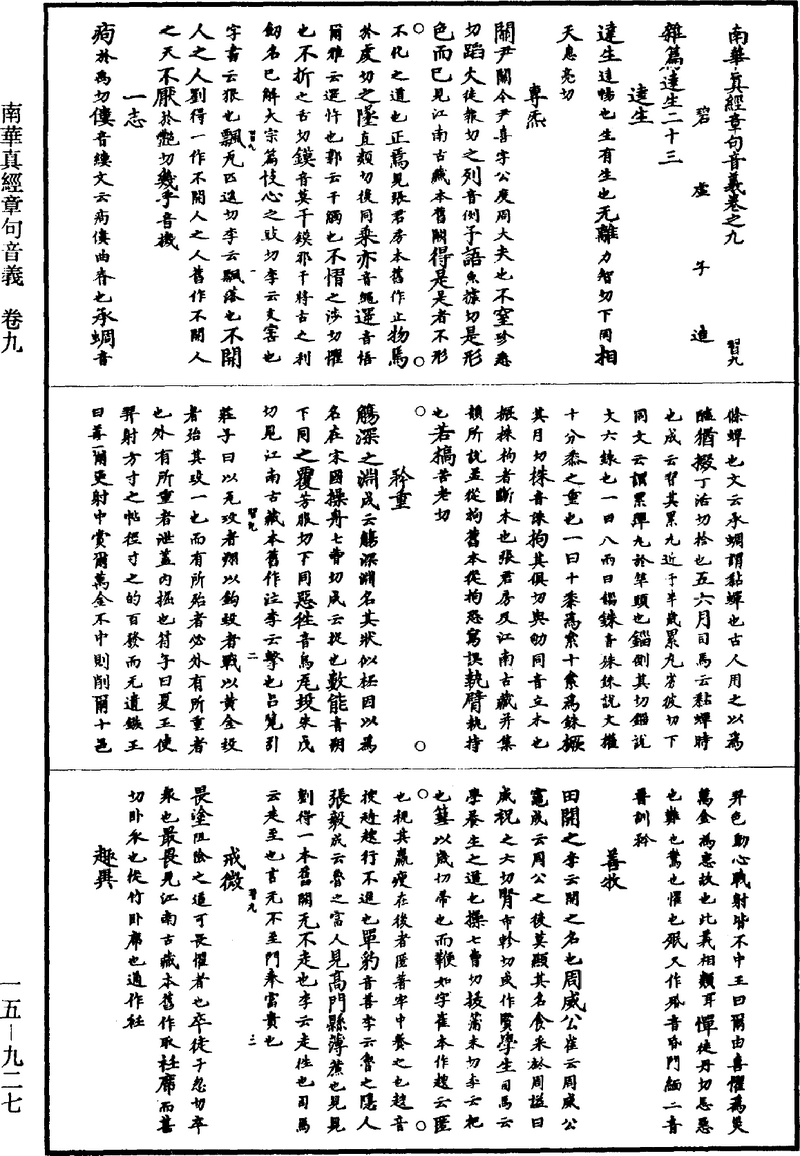 南華真經章句音義卷之九
習九
碧虛子造
雜篇達生二十三
達生
達生達暢也生有生也无離力智切下同相
天息亮切
專炁
關尹關令尹喜字公度周大夫也不窒珍悉
切蹈火徒報切之列音例予語魚據切是形
色而已見江南古藏本舊闕得是是者不形
不化之道也正焉見張君房本舊作止物焉
於虔切之墜直類切後同乘亦音繩遌音悟
爾雅云遌忤也郭云干觸也不慴之涉切懼
也不折之舌切鏌音莫干鏌邪干將古之利
劒名已解大宗篇忮心之豉切李云支害也
字書云狠也飄瓦匹遙切李云飄落也不開
人之人劉得一作不開人之人舊作不開人
之天不厭於豔切幾乎音機
一志
痀於禹切僂音縷文云痀僂曲脊也承蜩音
條蟬也文云承蜩謂黏蟬也古人用之以為
醢猶掇丁活切拾也五六月司馬云黏蟬時
也成云習其累丸近于半歲累丸劣彼切下
同文云謂累彈丸於竿頭也錙側其切錙說
文六銖也一曰八兩曰錙銖音殊銖說文權
十分黍之重也一曰十黍為絫十絫為銖橛
其月切株音誅拘其俱切與劬同音立木也
橛株拘者斷木也張君房及江南古藏并集
韻所說並從拘舊本從拘恐寫誤執臂執持
也若槁苦老切
矜重
觴深之淵成云觴深淵名其狀似杯因以為
名在宋國操舟七曹切成云捉也數能音朔
下同之覆芳服切下同惡往音烏瓦投朱戊
切見江南古藏本舊作注李云擊也呂覽引
莊子曰以瓦投者翔以鉤投者戰以黃金投
者殆其投一也而有所殆者必外有所重者
也外有所重者泄蓋內掘也符子曰夏王使
羿射方寸之帖徑寸之的百發而无遺鏃王
曰善一爾更射中賞爾萬金不中則削爾十邑
羿色動心戰射皆不中王曰爾由喜懼為災
萬金為患故也此義相類耳憚徒丹切忌惡
也難也驚也懼也殙又作殙音昏門緬二音
舊訓矜
善牧
田開之李云開之名也周威公崔云周威公
竈成云周公之後莫顯其名食采於周謚曰
威祝之六切腎市軫切或作賢學生司馬云
學養生之道也操七曹切拔蒲末切李云把
也篲以歲切帚也而鞭如字崔本作趦云匿
也視其羸瘦在後者匿著牢中養之也趦音
按趦趄行不進也單豹音善李云魯之隱人
張毅成云魯之富人見高門縣薄蔗也見見
劉得一本舊闕无不走也李云走往也司馬
云走至也言无不至門奉富貴也
戒微
畏塗阻險之道可畏懼者也卒徒子忽切卒
眾也最畏見江南古藏本舊作取衽席而甚
切卧衣也從竹卧席也通作衽
趣異
習九
一
習九
二
習九
三
南華真經章句音義 卷九
一五—九二七